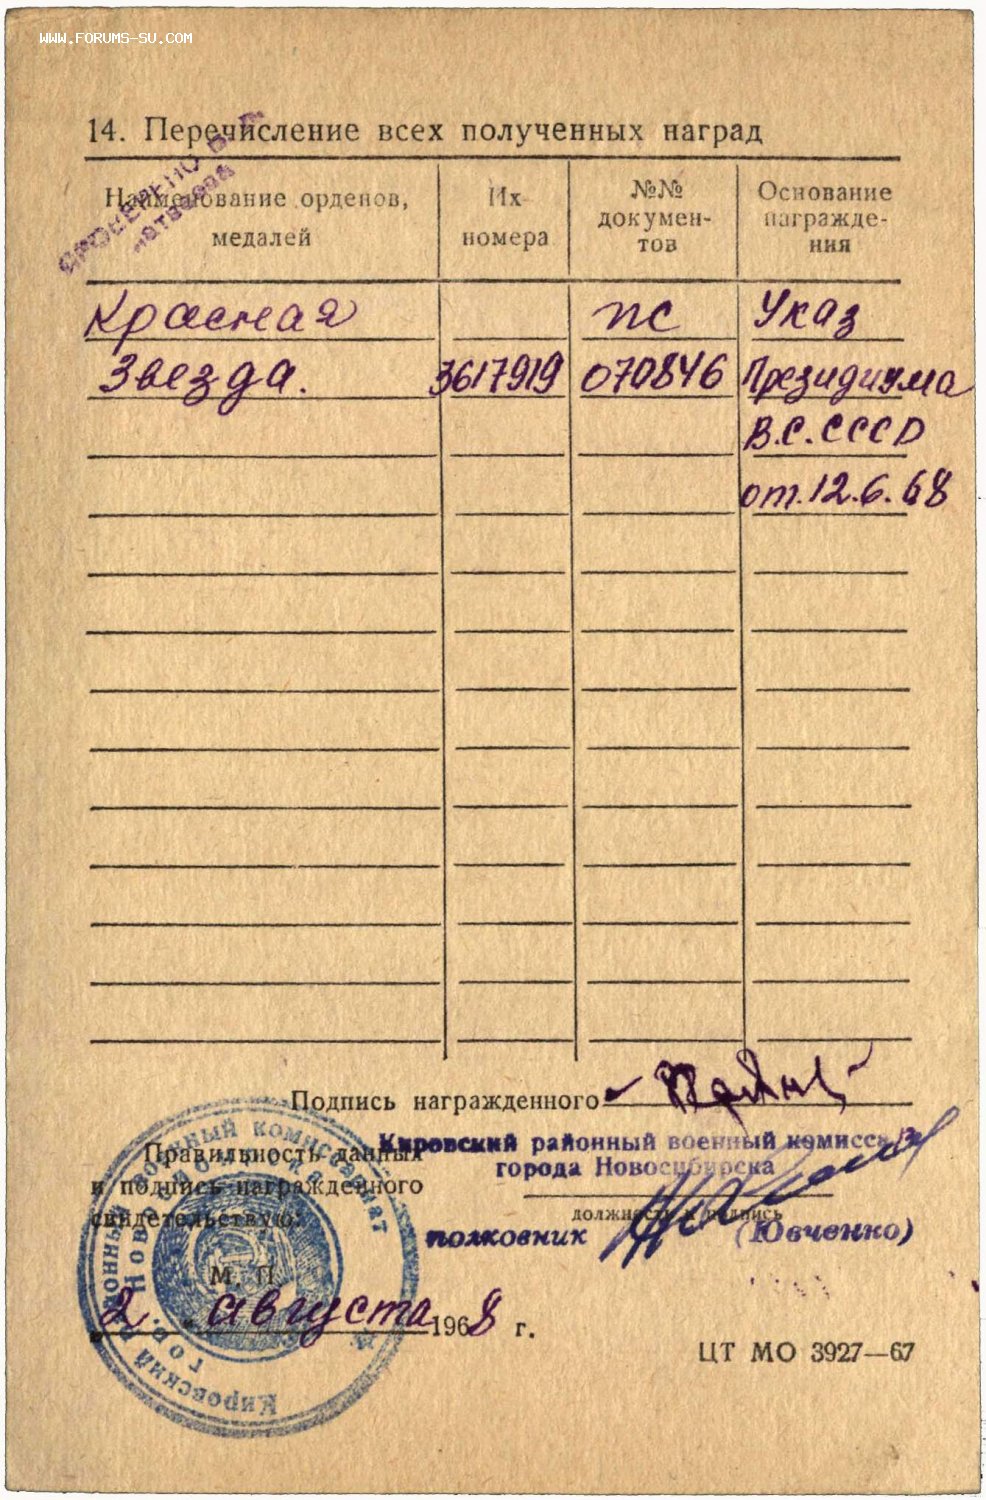 WWW.FORUMS-SU.COM
14. Перечисление всех полученных наград
ПРОВЕРЕНО
Наименование орденов, медалей
Их номера
№№ докумен-
тов
Основание
награжде-
ния
Красная пс Указ
Звезда. 3617919 070846 Президиума
В.С. СССР
от.12.6.68
Подпись награжденного
Кировский районный военный комисса
города Новосибирска
Правильность данных
и подпись награжденного
свидетельствую:
должность и подпись
полковник (Ювченко)
М. П.
Кировский районный военный комиссариат
гор. Новосибирска
„2.“ августа 1968 г.
ЦТ МО 3927—67